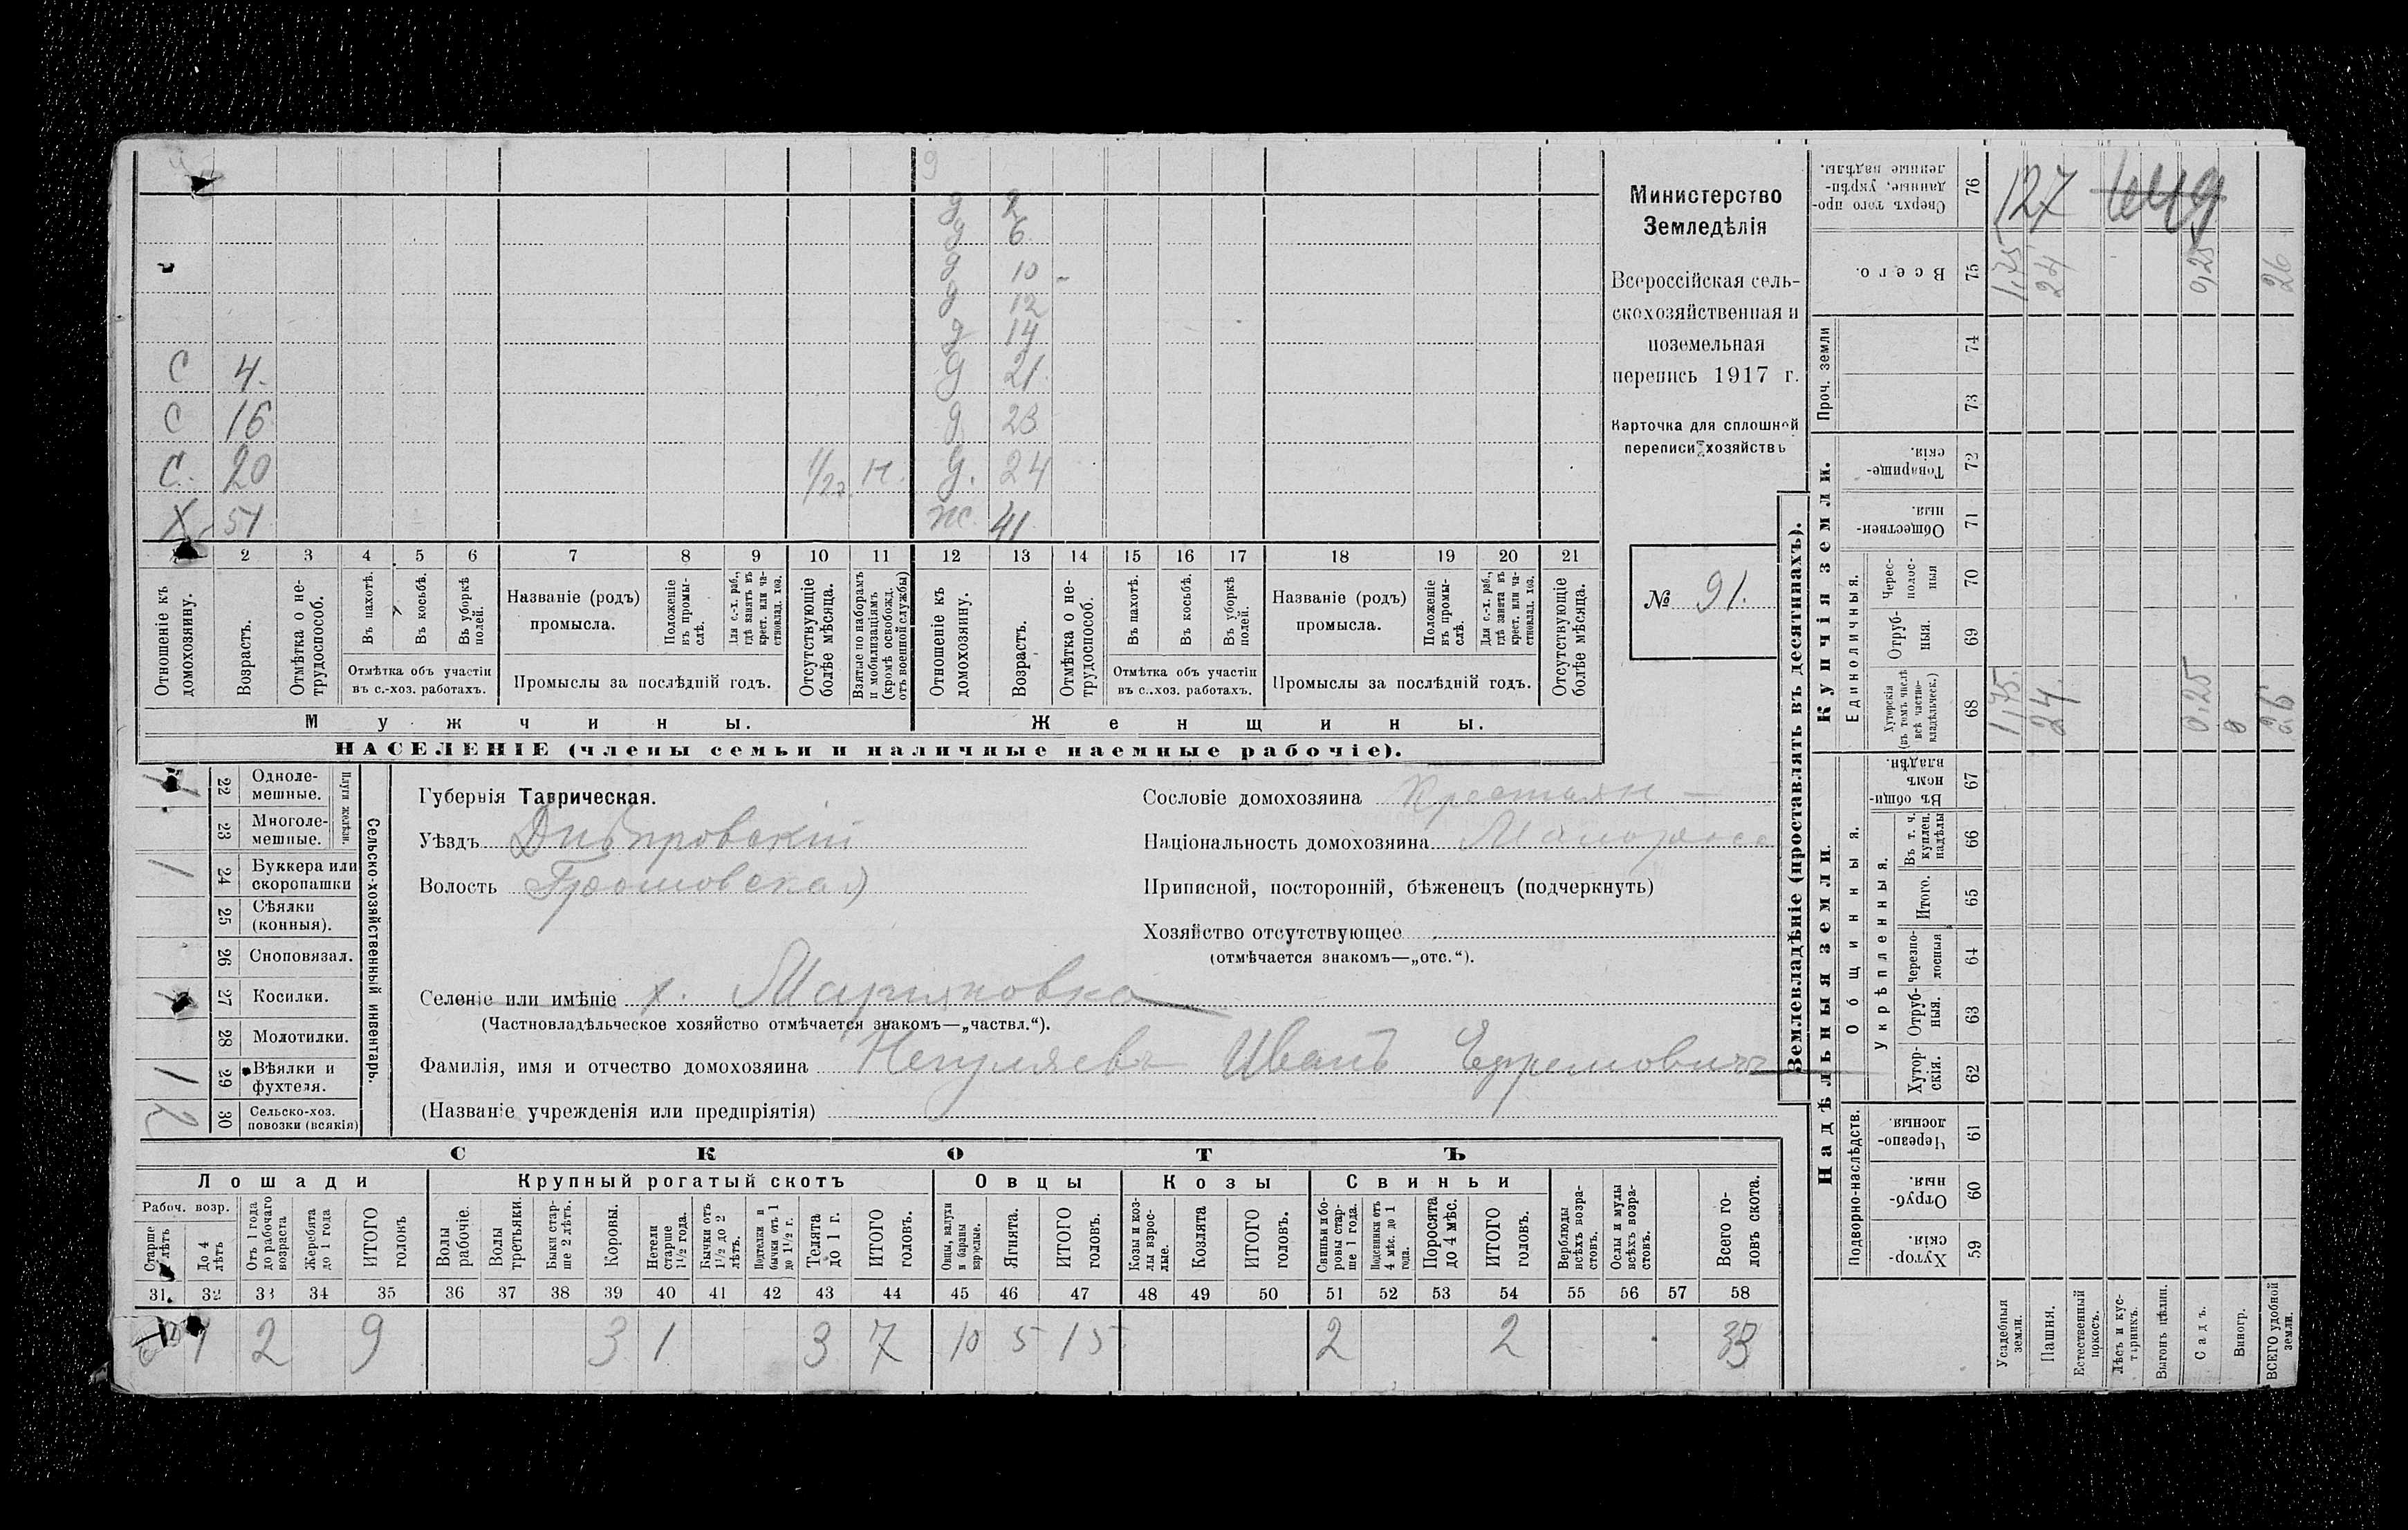 9
д 2
д 6
д 10 -
д 12
д 14
С 4. д 21
С 16 д 23
С. 20 Н. д. 24
Х 51 ж 41
2 3 4 5 6 7 8 9 10 11 12 13 14 15 16 17 18 19 20 21
Отношеніе къ домохозяину.
Возрастъ.
Отмѣтка о не-трудоспособ.
Въ пахотѣ.
Въ косьбѣ.
Въ уборкѣ полей.
Отмѣтка объ участіи
въ с.-хоз. работахъ.
Названіе (родъ)
промысла.
Положеніе въ промы-слѣ.
Для с.-х. раб., гдѣ занятъ въ крест. или ча-стновлад. хоз.
Промыслы за послѣдній годъ.
Отсутствующіе болѣе мѣсяца.
Взятые по наборамъ и мобилизаціямъ (кромѣ освобожд. отъ военной службы)
Отношеніе къ домохозяину.
Возрастъ.
Отмѣтка о не-трудоспособ.
Въ пахотѣ.
Въ косьбѣ.
Въ уборкѣ полей.
Отмѣтка объ участіи
въ с.-хоз. работахъ.
Названіе (родъ)
промысла.
Положеніе въ промы-слѣ.
Для с.-х. раб., гдѣ занята въ крест. или ча-стновлад. хоз.
Промыслы за послѣдній годъ.
Отсутствующіе болѣе мѣсяца.
Мужчины.
Женщины.
НАСЕЛЕНІЕ (члены семьи и наличные наемные рабочіе).
Министерство
Земледѣлія
Всероссійская сель-
скохозяйственная и
поземельная
перепись 1917 г.
Карточка для сплошной
переписи хозяйствъ
№ 91.
22 Одноле-мешные.
23 Многоле-мешные.
Плуги желѣзн.
1 24 Буккера или скоропашки
25 Сѣялки (конныя).
26 Сноповязал.
27 Косилки.
28 Молотилки.
1 29 Вѣялки и фухтеля.
2 30 Сельско-хоз. повозки (всякія)
Сельско-хозяйственный инвентарь.
Губернія Таврическая.
Уѣздъ Днѣпровскій
Волость
Селеніе или имѣніе х. Марияновка
(Частновладѣльческое хозяйство отмѣчается знакомъ—„частвл.“).
Фамилія, имя и отчество домохозяина Непуляевъ Иванъ Ефремовичъ
(Названіе учрежденія или предпріятія)
Сословіе домохозяина Крестьян —
Національность домохозяина Малоросс
Приписной, посторонній, бѣженецъ (подчеркнуть)
Хозяйство отсутствующее
(отмѣчается знакомъ—„отс.“).
СКОТЪ
Лошади Крупный рогатый скотъ Овцы Козы Свиньи
Рабоч. возр.
Старше лѣтъ
До 4 лѣтъ
Отъ 1 года до рабочаго возраста
Жеребята до 1 года
ИТОГО головъ
Волы рабочіе.
Волы третьяки.
Быки стар-ше 2 лѣтъ.
Коровы.
Нетели старше 1½ года.
Бычки отъ 1½ до 2 лѣтъ.
Подтелки и бычки отъ 1 до 1½ г.
Телята до 1 г.
ИТОГО головъ.
Овцы, валухи и бараны взрослые.
Ягнята.
ИТОГО головъ.
Козы и коз-лы взрос-лые.
Козлята
ИТОГО головъ.
Свиньи и бо-ровы стар-ше 1 года.
Подсвинки отъ 4 мѣс. до 1 года.
Поросята до 4 мѣс.
ИТОГО головъ.
Верблюды всѣхъ возра-стовъ.
Ослы и мулы всѣхъ возра-стовъ.
Всего го-ловъ скота.
31. 32 33 34 35 36 37 38 39 40 41 42 43 44 45 46 47 48 49 50 51 52 53 54 55 56 57 58
1 2 9 3 1 3 7 10 5 15 2 2 33
Землевладѣніе (проставлять въ десятинахъ).
Сверхъ того про-данные, укрѣп-ленные надѣлы. 76 127
Всего. 75 1,75 24 0,25 26
Проч. земли
74
73
Купчія земли.
Товарище-скія. 72
Обществен-ныя. 71
Единоличныя.
Черес-полос-ныя 70
Отруб-ныя. 69
Хуторскія (въ томъ числѣ всѣ частно-владѣльческ.) 68 1,75. 24. 0,25 26
Надѣльныя земли
Общинныя.
Въ общи-номъ владѣн. 67
Укрѣпленныя.
Въ т. ч. куплен. надѣлы 66
Итого. 65
Черезпо-лосныя 64
Отруб-ныя. 63
Хутор-скія. 62
Подворно-наслѣдств.
Черезпо-лосныя 61
Отруб-ныя. 60
Хутор-скія. 59
Усадебныя земли.
Пашня.
Естественный покосъ.
Лѣсъ и кус-тарникъ.
Выгонъ цѣлин.
Садъ.
Виногр.
ВСЕГО удобной земли.